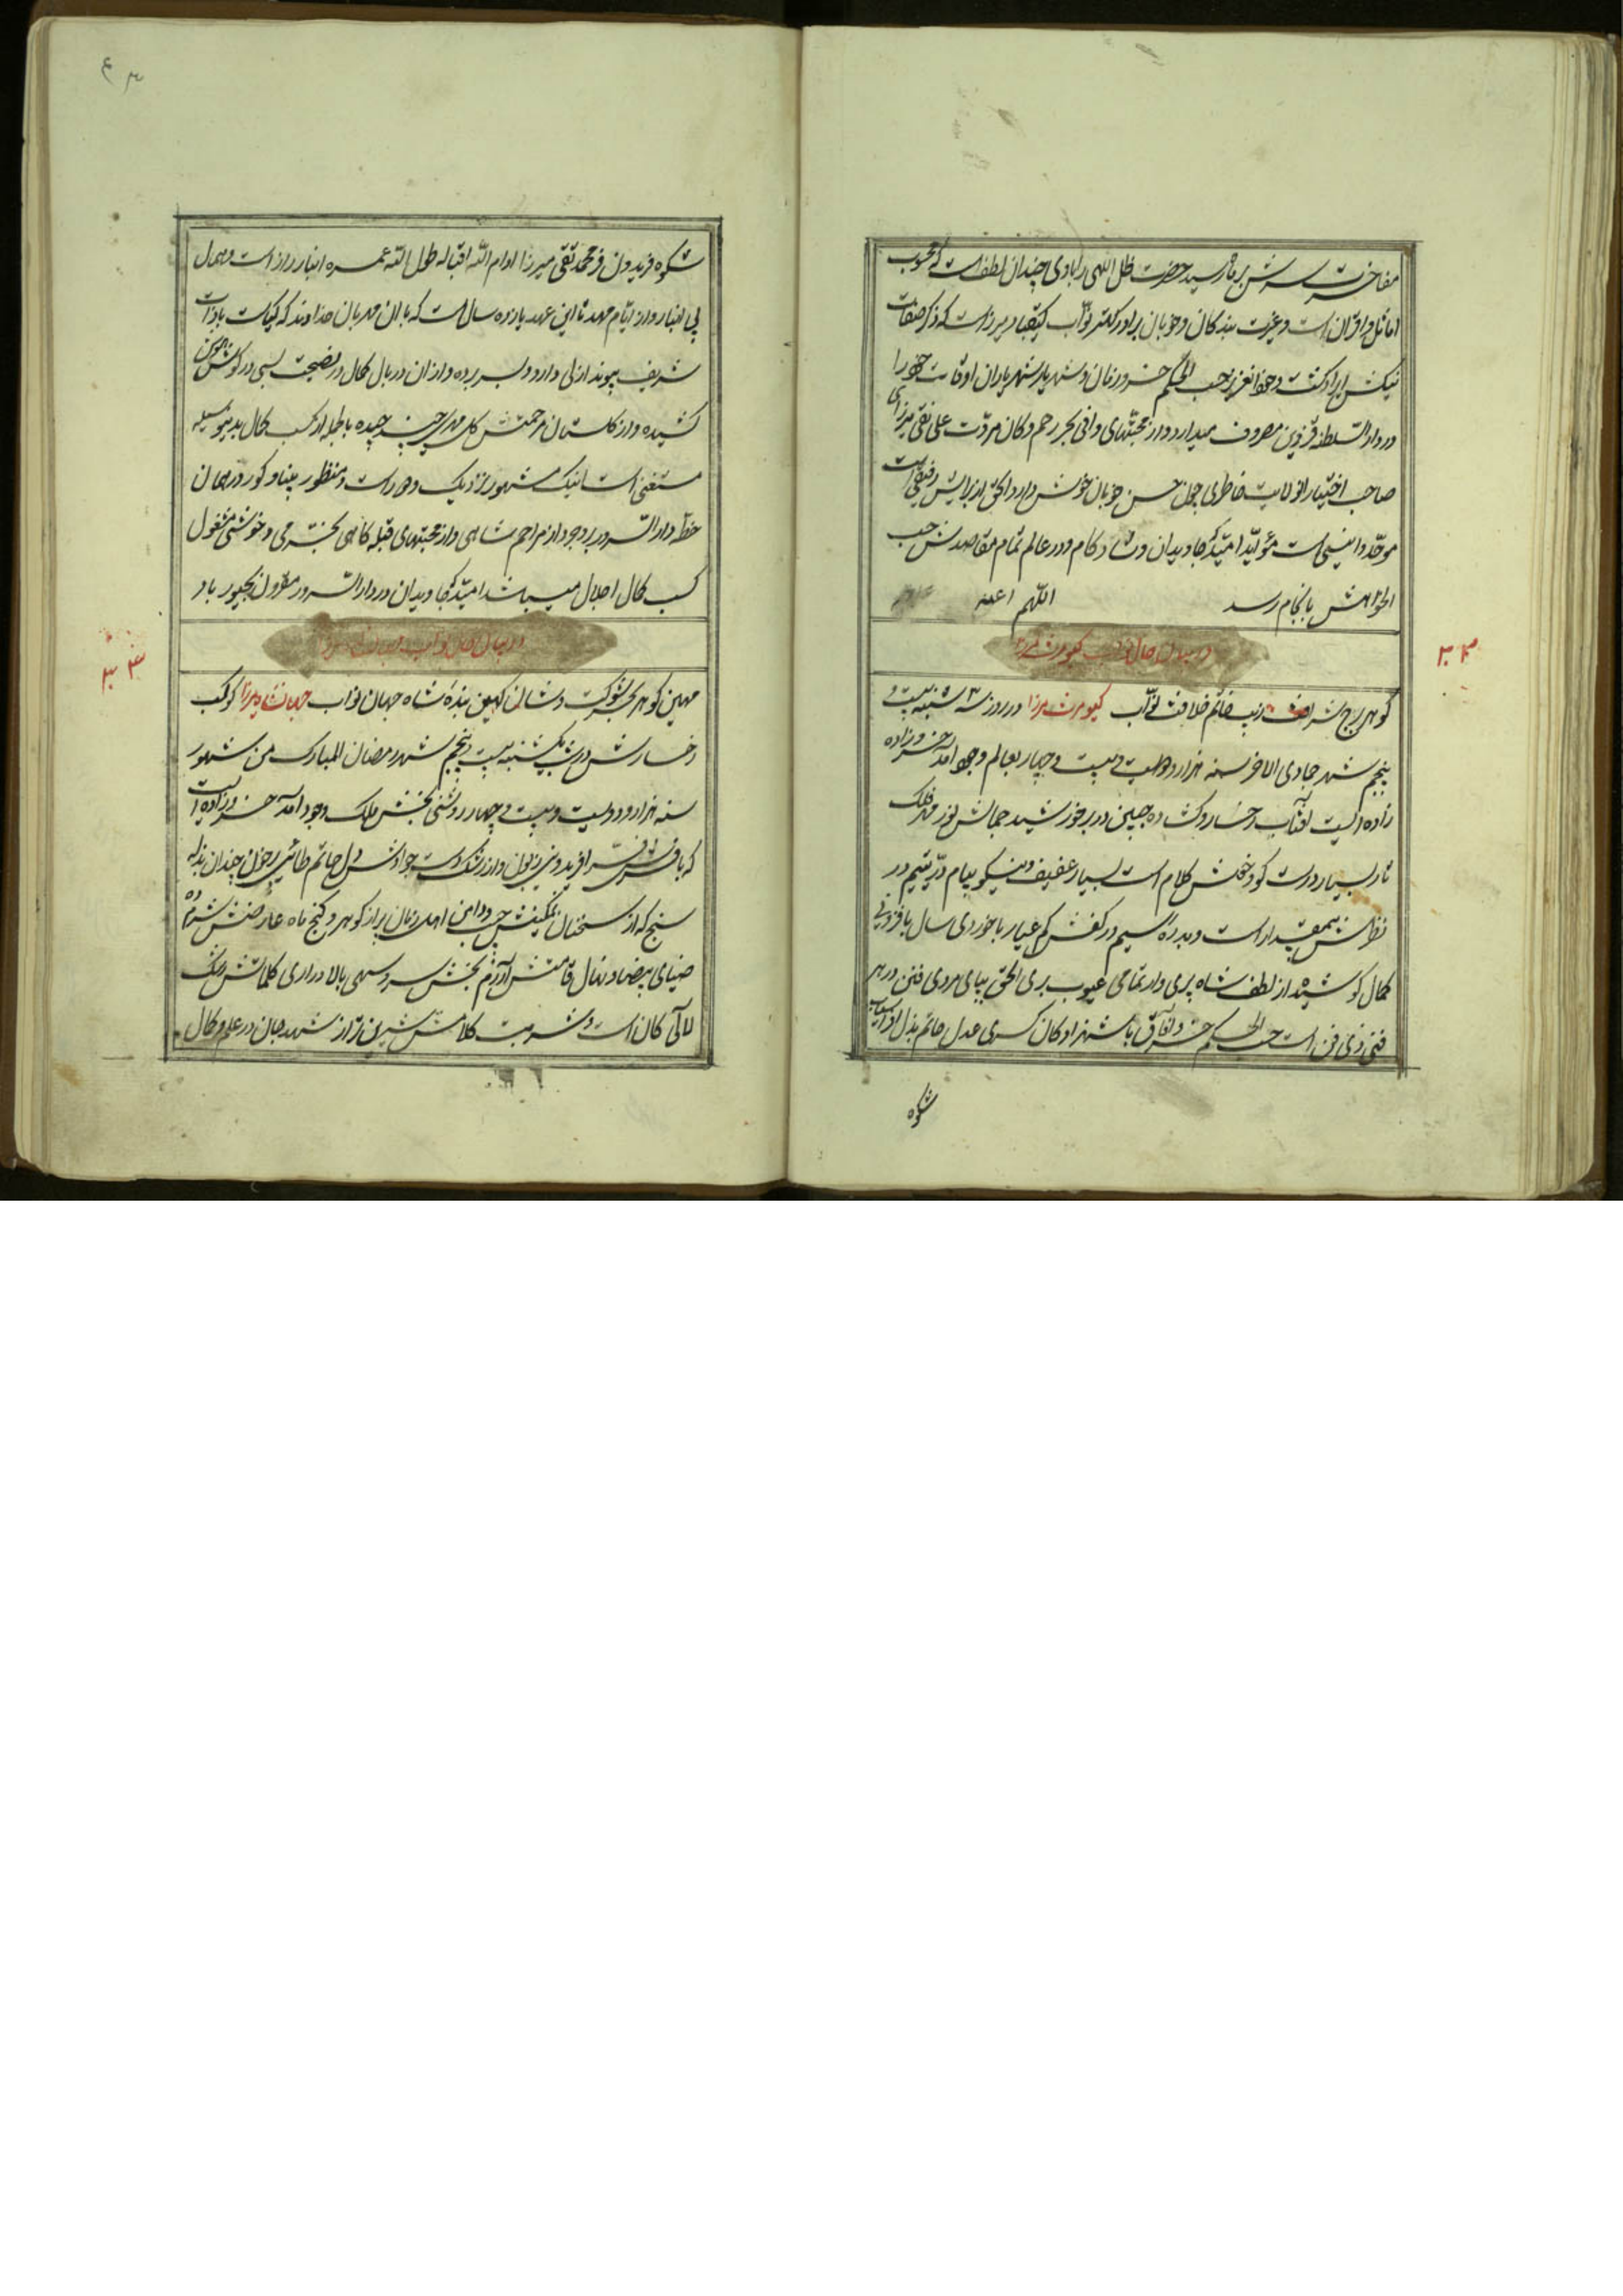 مفاخرت سرش بر ماه رسید حضرت ظل اللهی را باوی چندان لطف است که محبوب
اماثل و اقران است و غیرت بندکان و خوبان برادر کهتر نواب کیقباد میرزاست که ذکر صفات
نیکش ایراد کشت و جزا لعزیز حسب الحکم خسرو زمان و شهریار شهریاران اوقات خود را
در دار السلطنه قزوین مصروف میدارد و از محبتهای وافی بحر رحم و کان مروت علی نقی میرزای
صاحب اختیار انولایت خاطری چون حسن خوبان خوش دارد الحق از برایش رفیقی است
موحد و انیسی است مؤید امید که جاویدان و شاد کام و در عالم تمام مقاصدش حسب
الخواهش بانجام رسد اللهم
در بیان احوال نواب کیومرث میرزا
۲۳
کوهر برج شرافت زیب خاتم خلافت نواب کیومرث میرزا در روز سه شنبه بیست و
پنجم شهر جمادی الاخر سنه هزار و دویست و بیست و چهار بعالم وجود آمد خسرو زاده
زاده ایست افتاب رخسار و کشاده جبین در بر خورشید جمالش نور مهر فلک
نار بسیار درست کو و خلش کلام است بسیار عفیف و نیکو پیام در یتیم در
نظرش بیمقدار است و بدره سیم در کفش کم عیار با خوردی سال با فزونی
کمال کوشید از لطف شاه پری وار تمامی عیوب بری الحق بپای مردی فتن در هر
فنی ذی فن است حسب الحکم خسرو آفاق با شهزادکان کسری عدل حاتم بذل افراسیاب
شکوه
شکوه فریدون فر محمد تقی میرزا ادام الله اقباله طول الله عمره انباز راز است و همال
بی انباز و از ایام مهد تا این عهد یازده سال است که با ان مهربان خداوند که کیاست با ذات
شریف پیوند ازلی دارد بسر برده و از ان دریای کمال در نصیحت بسی در کوش هوش
کشیده و از کلستان مرحمتش کل مهر چیده با طبله از کسب کمال بدینوسیله
مستغنی است اینک مشهور نزدیک و دور است و منظور بینا و کور در همان
خطه دار السرور بروجرد از مراحم شاهی و از محبتهای قبله کاهی بخرمی و خوشی مشغول
کسب کمال اجلال میباشد امید که جاویدان در دار السرور مقرون بحبور باد
در بیان احوال نواب جهانشاه میرزا
۲۴
مهین کوهر بحر شوکت و شان کهین بنده شاه جهان نواب جهانشاه میرزا کوکب
رخسارش در شب یکشنبه بیست و پنجم شهر رمضان المبارک من شهور
سنه هزار و دویست و بیست و چهار روشنی بخش ملک وجود آمد خسرو زاده ایست
که با فرش فر افریدون زبون و از رشک دست جوادش دل حاتم طائی پرخون چندان بذله
سنج که از سخنان نمکینش جیب و دامن اهل زمان پر از کوهر و کنج ماه عارضش شرم ده
ضیای بیضا و نهال قامتش آزرم بخش سرو سهی بالا دراری کلماتش رشک
لالی کان است و شربت کلامش شیرین تر از شهد جان در علم و کمال